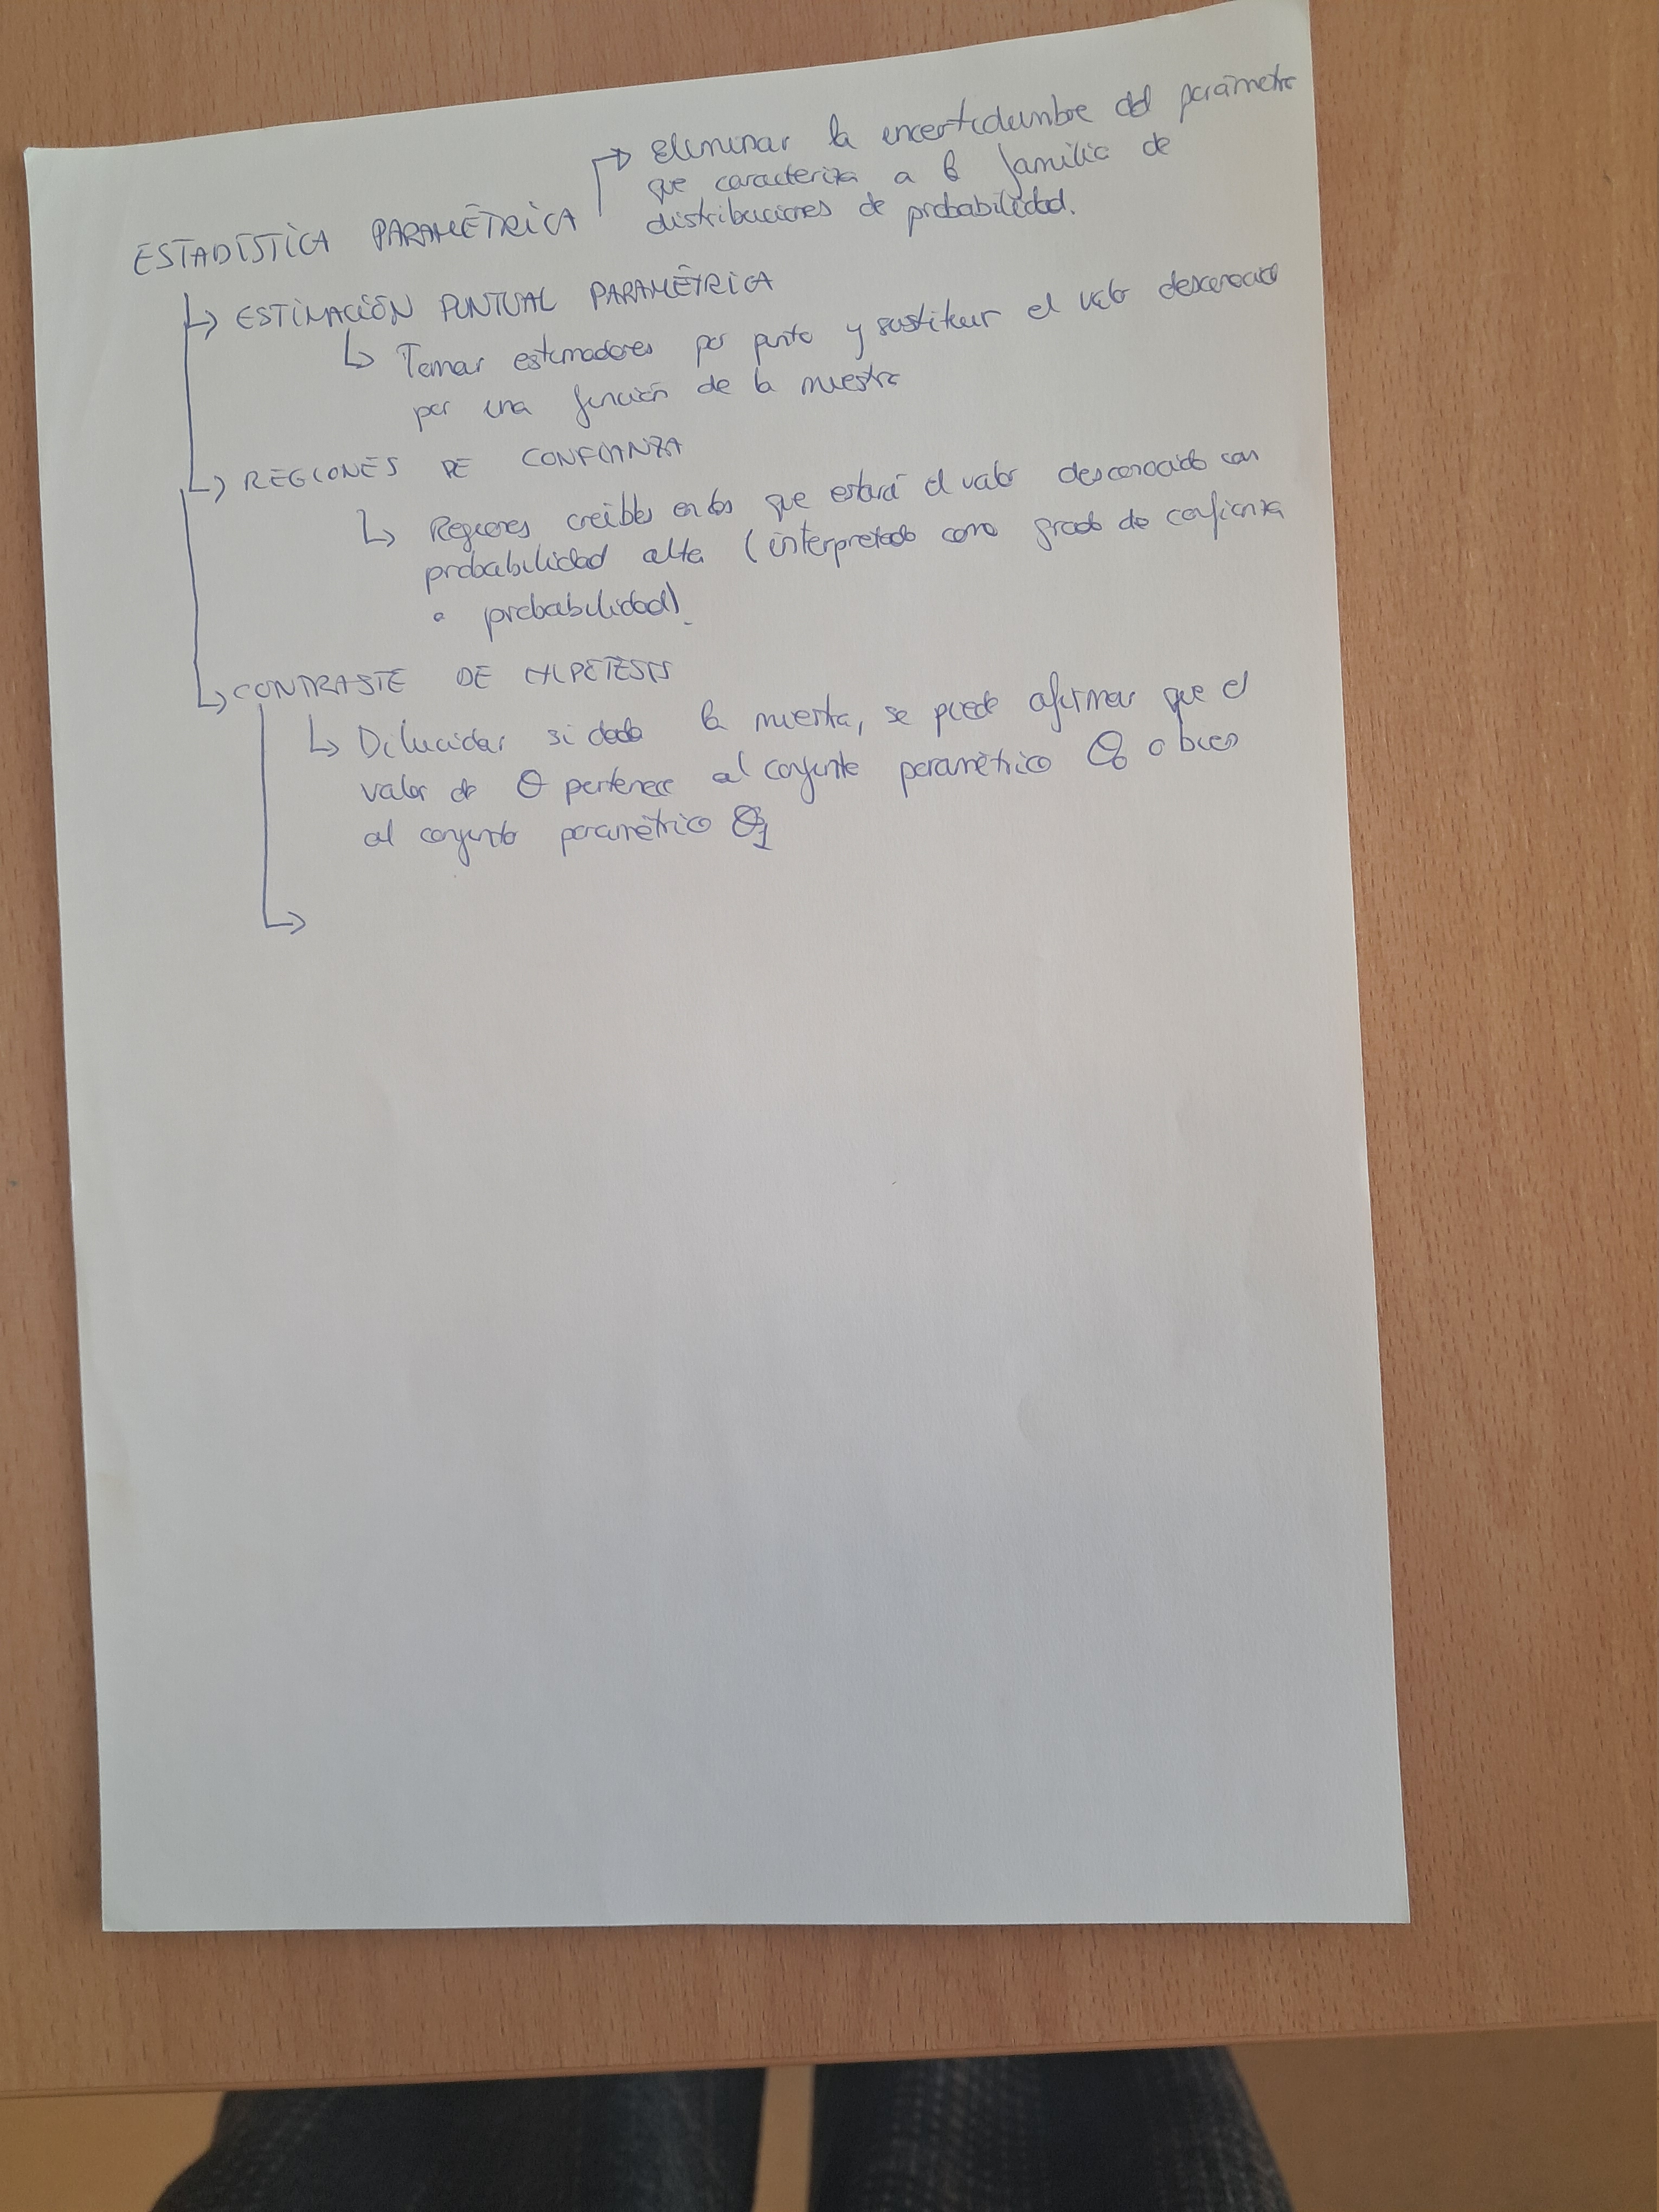 Eliminar la incertidumbre del parámetro
que caracteriza a la familia de
distribuciones de probabilidad.
ESTADÍSTICA PARAMÉTRICA
ESTIMACIÓN PUNTUAL PARAMÉTRICA
Tomar estimadores por punto y sustituir el valor desconocido
por una función de la muestra
REGIONES DE CONFIANZA
Regiones creíbles en las que estará el valor desconocido con
probabilidad alta (interpretado como grado de confianza
o probabilidad).
CONTRASTE DE HIPÓTESIS
Dilucidar si dada la muestra, se puede afirmar que el
valor de θ pertenece al conjunto paramétrico Θ₀ o bien
al conjunto paramétrico Θ₁